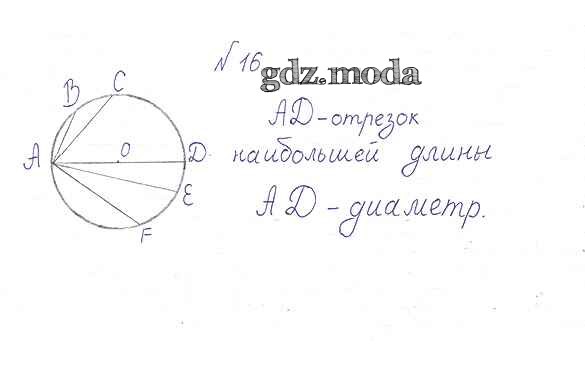 № 16
gdz.moda
B C
A O D
E
F
AD - отрезок
наибольшей длины
AD - диаметр.